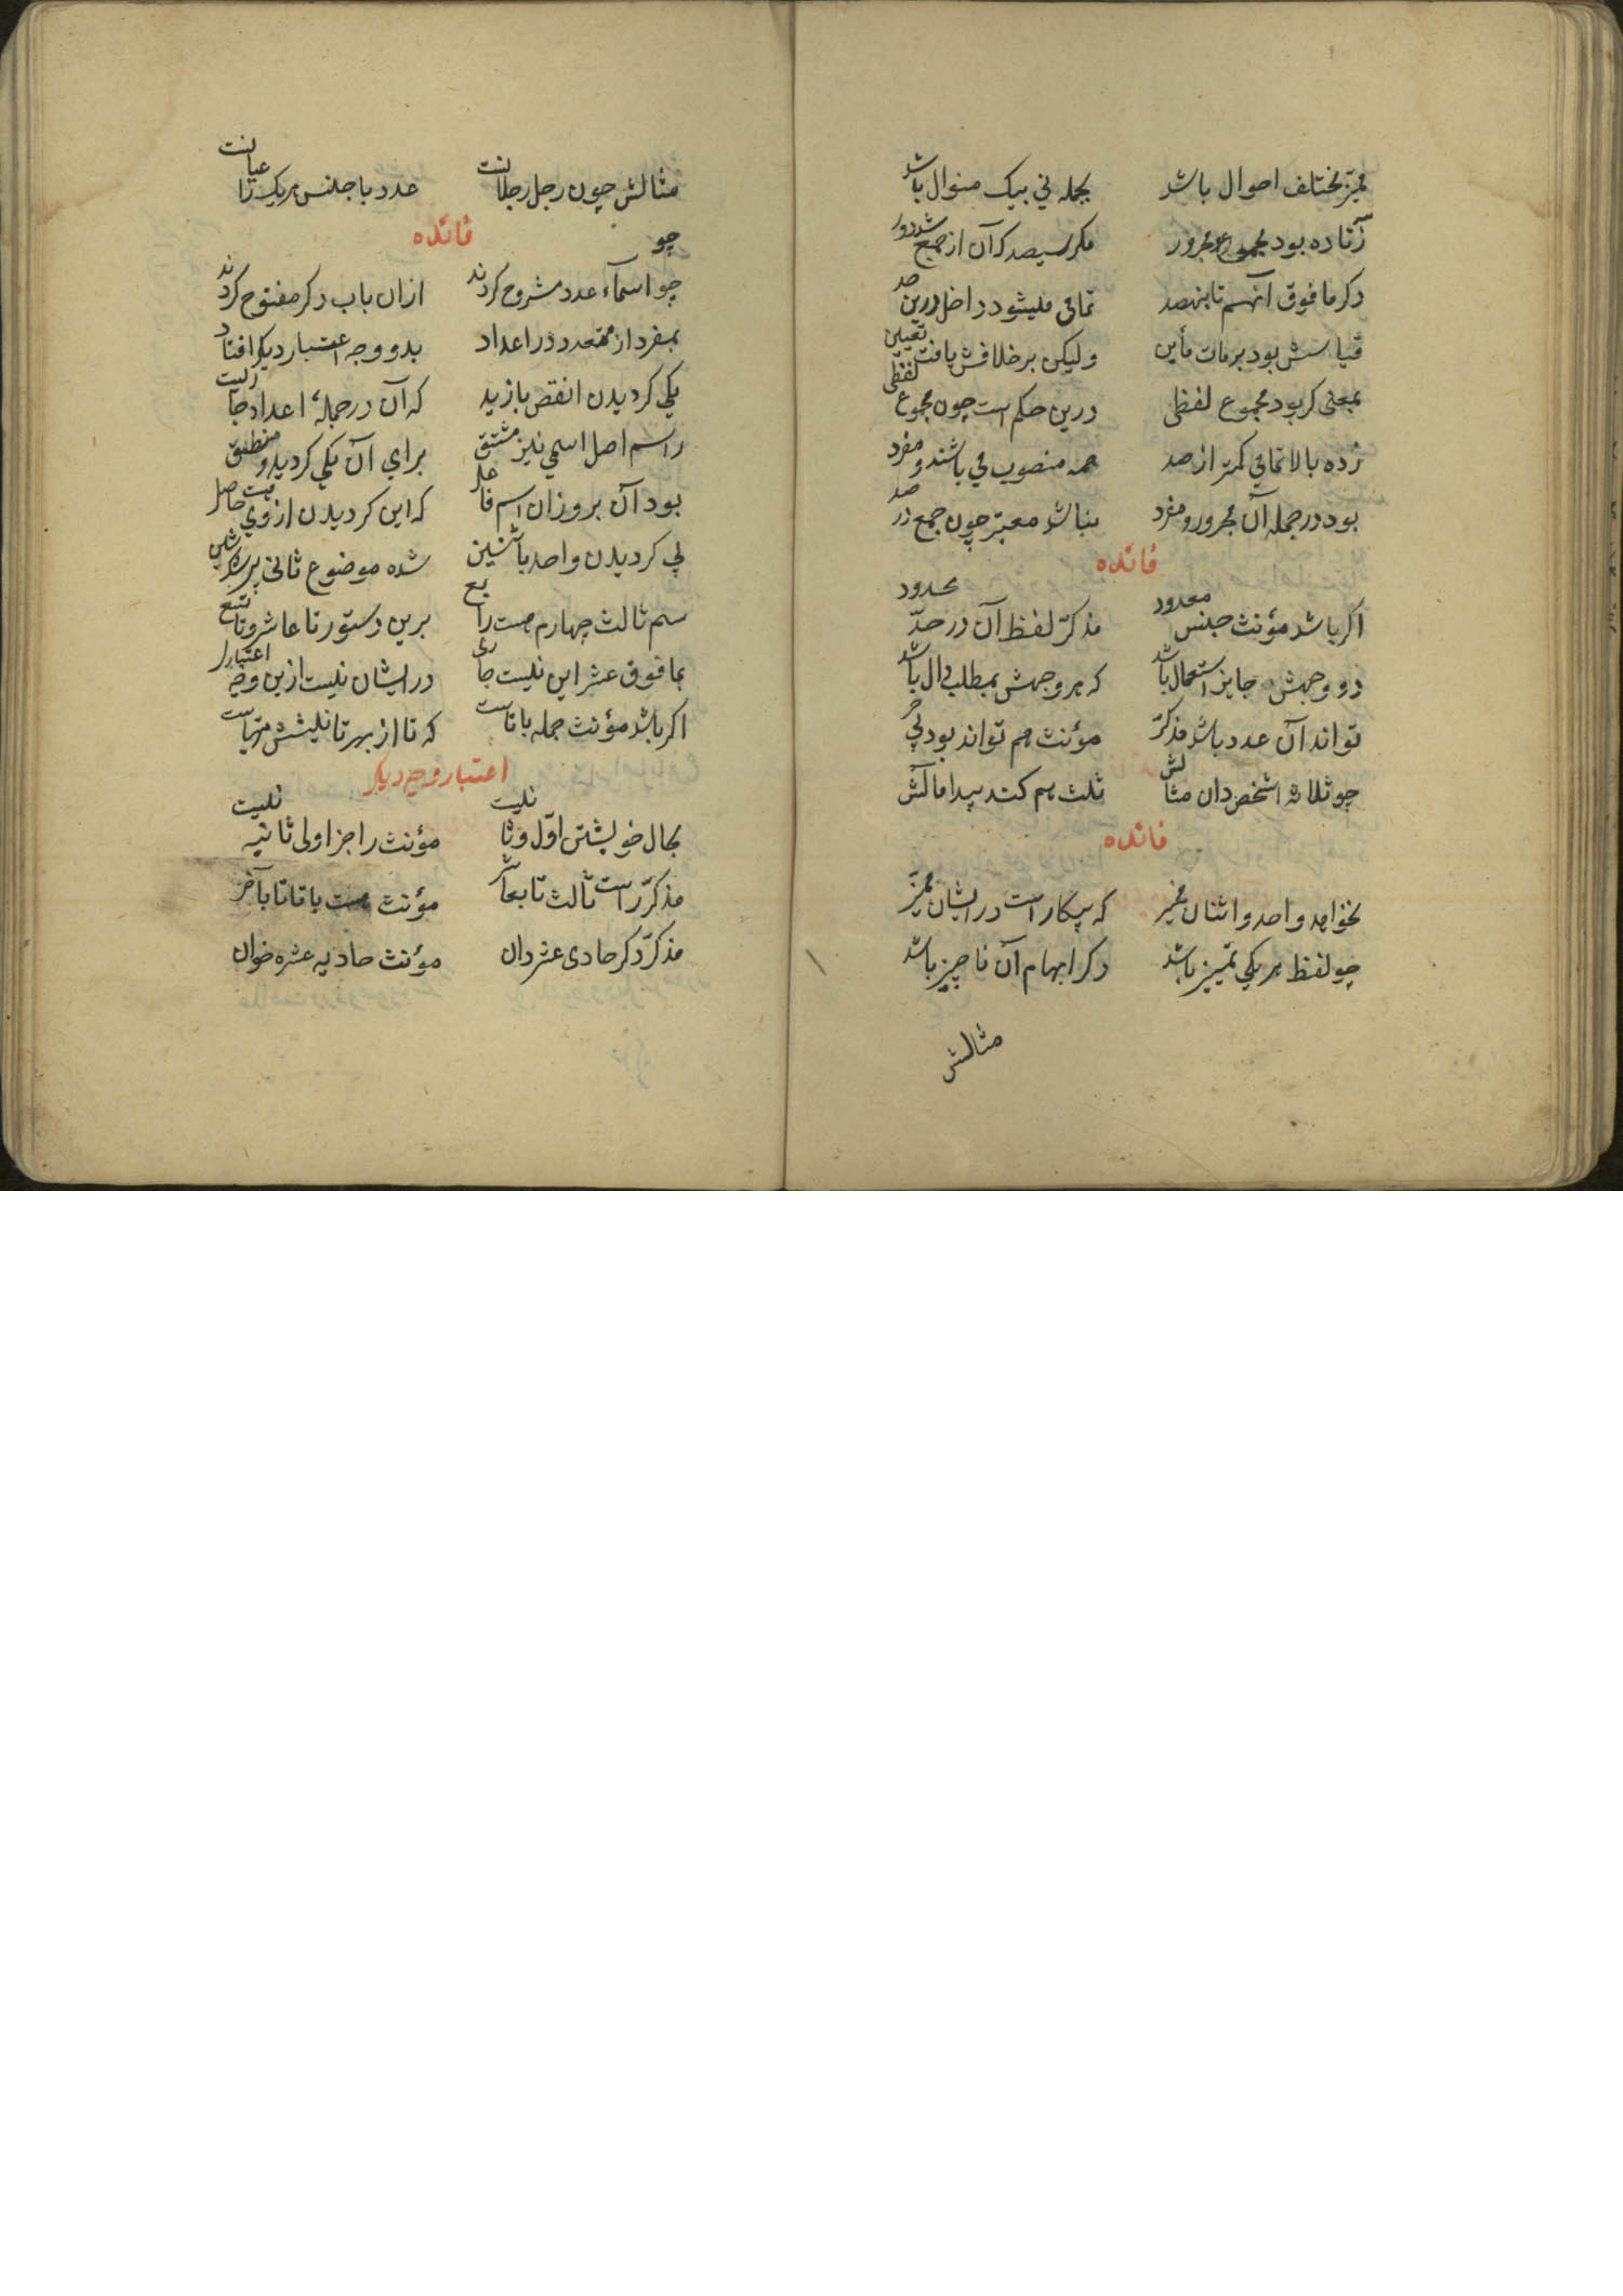 ممیز مختلف احوال باشد بجمله نی بیک منوال باشد
زتا ده بود مجموع و مجرور مکر سیصد که آن از جمع شد دور
دکر ما فوق آنهم تا بنهصد تمامی میشود داخل درین صد
قیاسش بود بر مات مأین ولیکن بر خلافش یافت تعیین
بمعنی کر بود مجموع لفظی درین حکم است چون مجموع لفظی
زده بالا تمامی کمتر از صد همه منصوب می باشند و مفرد
بود در جمله آن مجرور و مفرد نباشد معتبر چون جمع در صد
فائده
اکر باشد مؤنث جنس معدود مذکر لفظ آن در حد محدود
دو وجهش جایز استعمال باشد که هر وجهش بمطلب دال باشد
تواند آن عدد باشد مذکر مؤنث هم تواند بود پی جر
چو ثلاثة اشخص دان مثالش ثلث هم کند پیدا مآلش
فائده
نخواهد واحد و اثنان ممیز که بیکار است در ایشان ممیز
چو لفظ هر یکی تمییز باشد دکر ابهام آن ناچیز باشد
مثالش
مثالش چون رجل رجلانت عدد با جنس هریک را عیانت
چو فائده
چو اسماء عدد مشروح کردند ازان باب دکر مفتوح کردند
بمفرد از متعدد در اعداد بدو وجه اعتبار دیکر افتاد
یکی کردیدن انقص بازید که آن در جمله اعداد جا
راسم اصل اسمی نیز مشتق برای آن یکی کردید و منطبق
بود آن بر وزان اسم فاعل که این کردیدن از وی حاصل
پی کردیدن واحد باثنین شده موضوع ثانی
سم ثالث چهارم هست رابع برین دستور تا عاشر و تاسع
بما فوق عشر این نیست جاری در ایشان نیست ازین وجه اعتباری
اکر باشد مؤنث جمله با تاست که تا از بهر تانیثش مهیاست
اعتبار وجه دیکر
بحال خویشتن اول و ثانیست مؤنث را جز اولی ثانیه نیست
مذکر راست ثالث تا بعاشر مؤنث هست با تا تا بآخر
مذکر دکر حادی عشر دان مؤنث حادیه عشره خوان